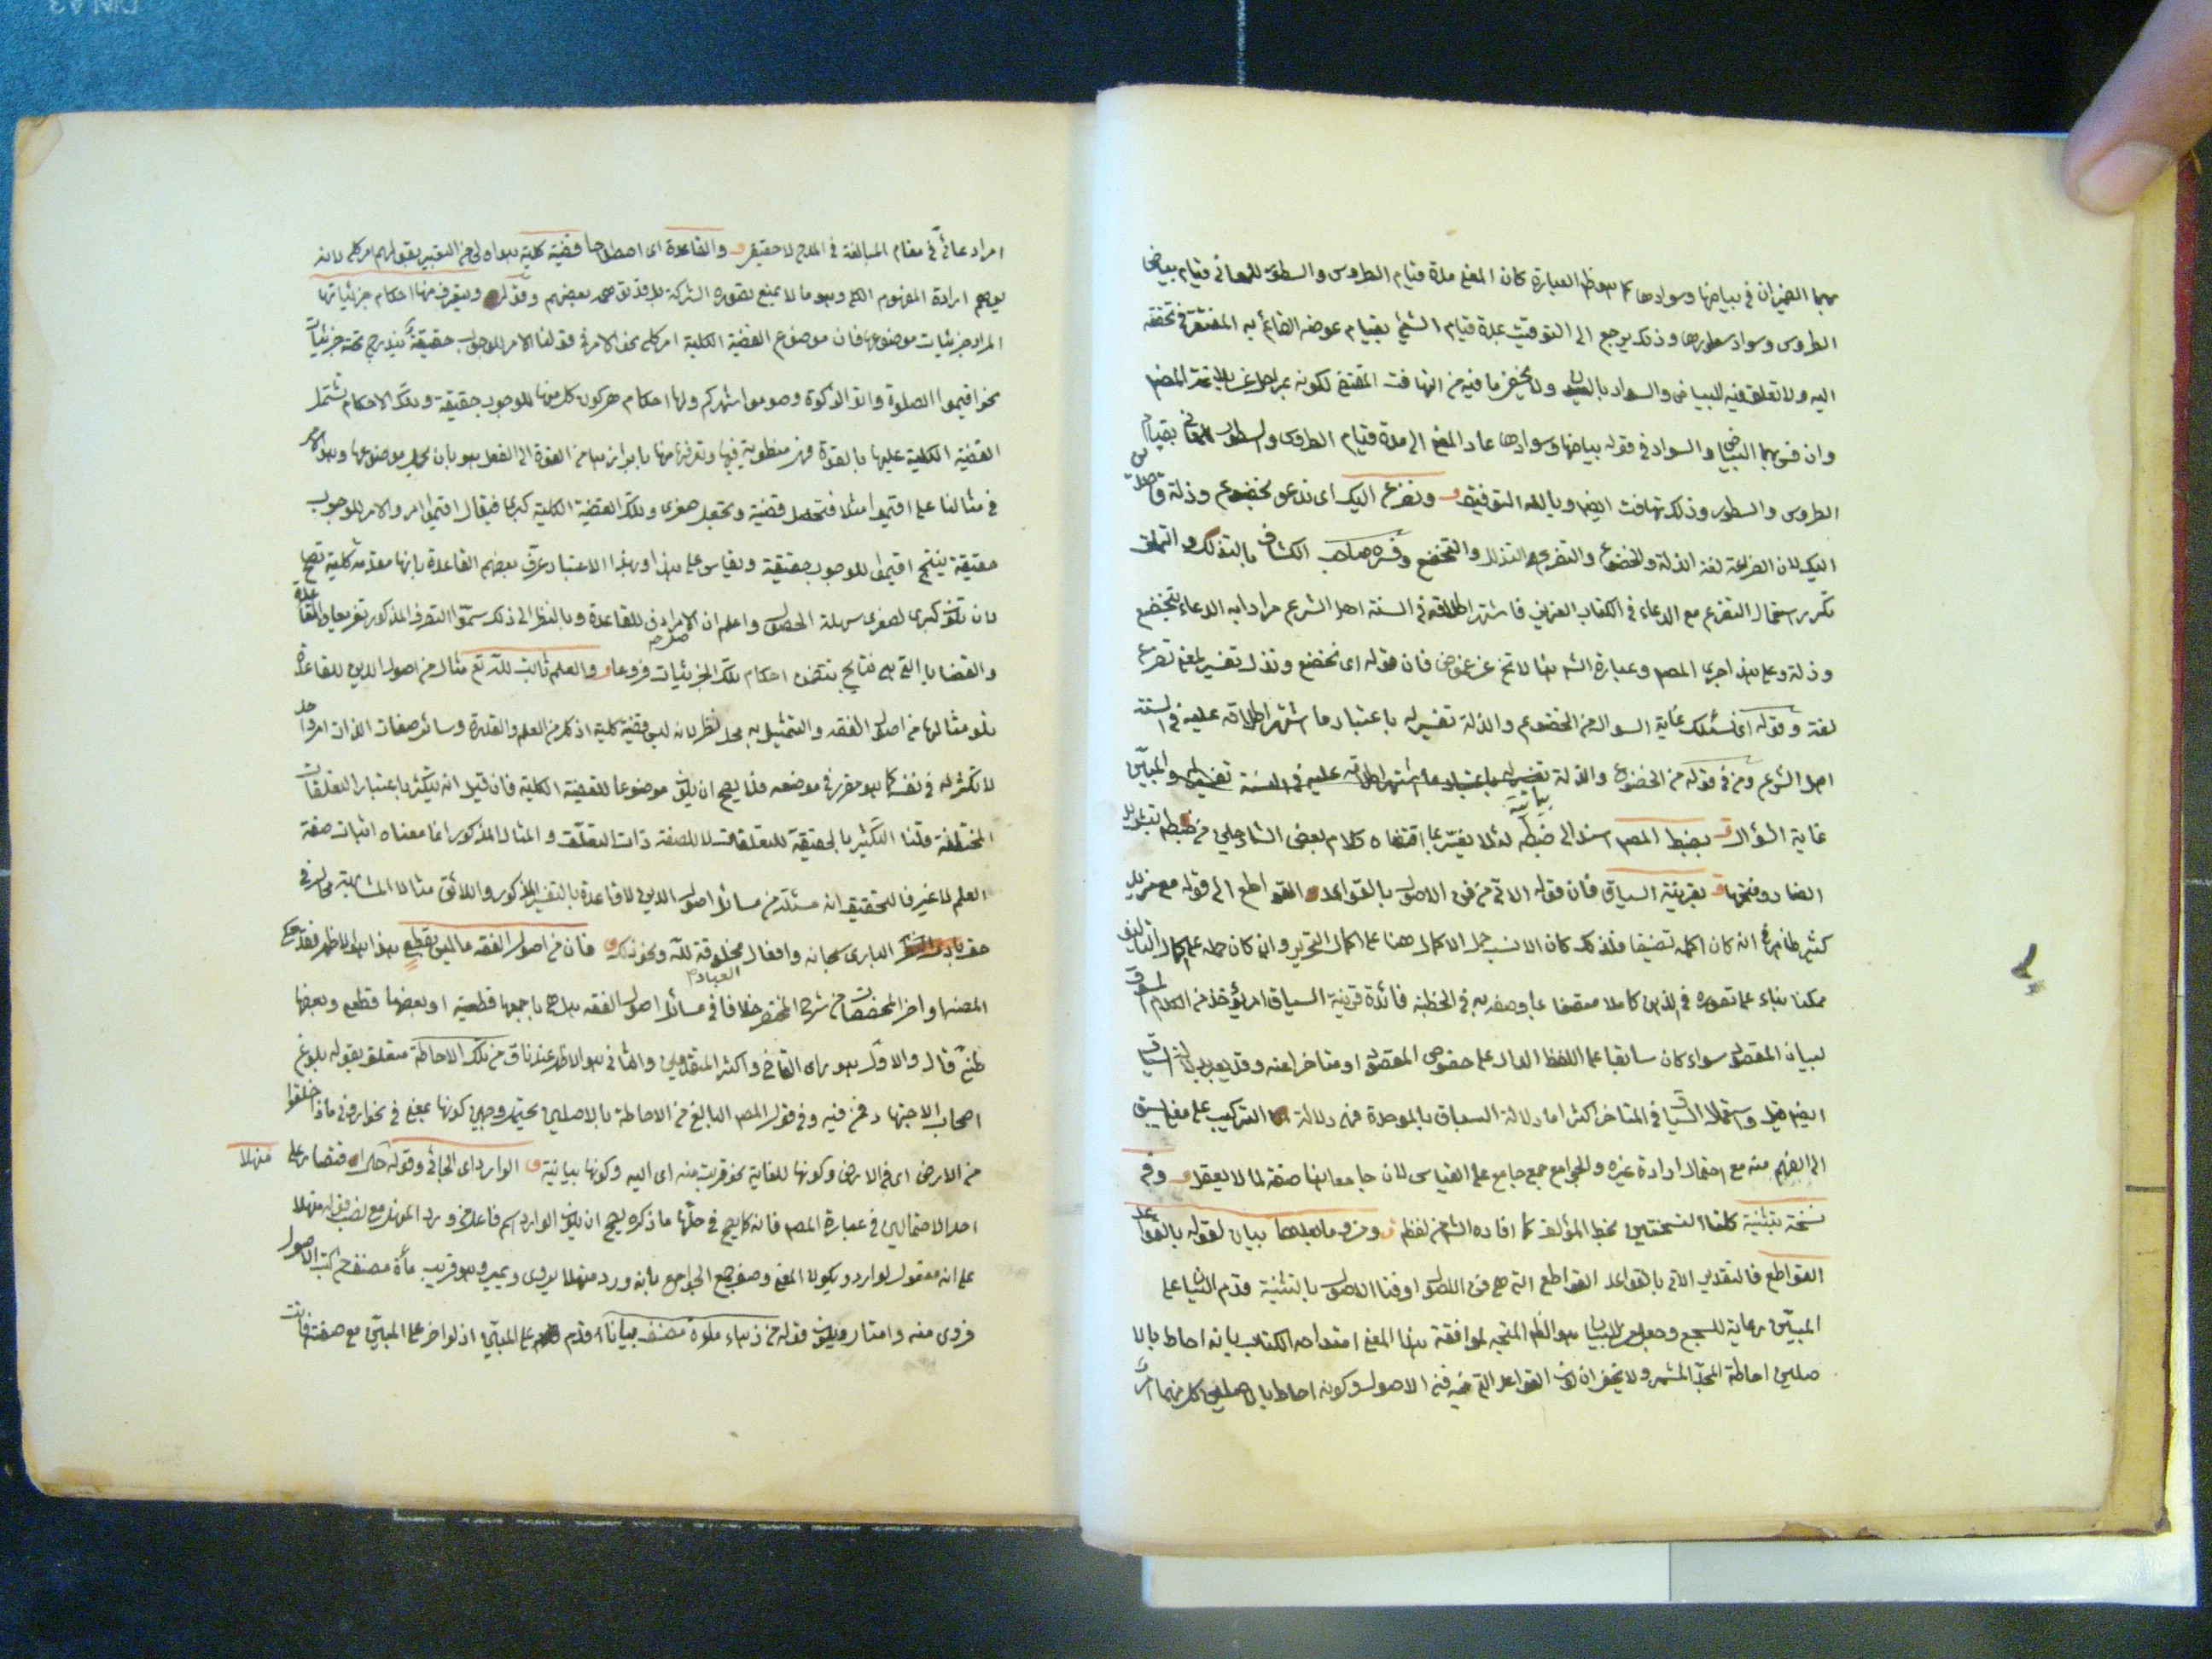 بهما الضميران في بياضها وسوادها كما هو ظ العبارة كان المعنى مدة قيام الطروس والسطور للمعاني قيام بياض
الطروس وسواد سطورها وذلك يرجع الى التوقيت بمدة قيام الشيئ بقيام عرضه القائم به المفتقر في تحققه
اليه ولا تعلق فيه للبياض والسواد ولا يخفى ما فيه من التهافت المقتضي لكونه بمراحل عن بلاغة المصنف
وان فسر بهما البياض والسواد في قوله بياضها وسوادها عاد المعنى الى مدة قيام الطروس والسطور بقيام
الطروس والسطور وذلك تهافت ايضا وبالله التوفيق ونضرع اليك اى ندعو بخضوع وذلة
اليك لان الضراعة لغة الذلة والخضوع والتضرع التذلل والتخضع وفسره صاحب الكشاف بالتذلل والتملق
تكرر استعمال التضرع مع الدعاء في الكتاب العزيز فاشتهر اطلاقه في السنة اهل الشرع مرادا به الدعاء بتخضع
وذلة وعلى هذا جرى المصنف وعبارة الش هنا لا تخ عن غموض فان قوله اى نخضع ونذل تفسير لمعنى نضرع
لغة وقوله اى نسئلك غاية السوال من الخضوع والذلة تفسير له باعتبار ما اشتهر اطلاقه عليه في السنة
اهل الشرع ومن في قوله من الخضوع والذلة بيانية والمبين
غاية السؤال بضبط المصنف اسند الى ضبطه لئلا يغتر بما اقتضاه كلام بعض الشارحين من ضبطه بتشديد
الضاد وفتحها بقرينة السياق فان قوله الاتي من فن الاصول بالقواعد القواطع الى قوله مع مزيد
كثير ظاهر في انه كان اكمله تصنيفا فلذلك كان الانسب حمل الاكمال هنا على اكمال التحرير وان كان حمله على اكمال التاليف
ممكنا بناء على تصوره في الذهن كاملا متصفا بما وصفه به في الخطبة فائدة قرينة السياق امر يؤخذ من الكلام المسوق
لبيان المقصود سواء كان سابقا على اللفظ الدال على خصوص المقصود او متاخرا عنه وقد يعبر
ايضا واستعمال السياق في المتاخر اكثر اما دلالة السباق بالموحدة فهي دلالة التركيب على معنى يسبق
الى الفهم منه مع احتمال ارادة غيره والجوامع جمع جامع على القياس لان جامعا هنا صفة لما لا يعقل وفي
نسخة بتثنية كلتا النسختين بخط المؤلف كما افاده الش من لفظه ومن وما بعدها بيان لقوله بالقواعد
القواطع فالتقدير الاتي بالقواعد القواطع التي هي فن الاصول او فنا الاصول بالتثنية قدم البيان على
المبين رعاية للسجع وجعل من للبيان هو الظ المتجه لموافقة هذا المعنى امتداحه الكتاب بانه احاط بالا
صلين احاطة المجد المشمر ولا يخفى ان كون القواعد التي فيه فن الاصول وكونه احاط بالاصلين كل منهما
امر ادعائي في مقام المبالغة في المدح لا حقيقي والقاعدة اى اصطلاحا قضية كلية هو اولى من التعبير بقولهم امر كلي لانه
يوهم ارادة المفهوم الكلي وهو ما لا يمنع تصوره الشركة بعضهم وقوله ويتعرف منها احكام جزئياتها
المراد جزئيات موضوعها فان موضوع القضية الكلية امر كلي نحو الامر في قولنا الامر للوجوب حقيقة يندرج تحته جزئيات
نحو اقيموا الصلوة واتوا الزكوة وصوموا شهركم ولها احكام هي كون كل منها للوجوب حقيقة وتلك الاحكام تشتمل
القضية الكلية عليها بالقوة فهي منطوية فيها وتعرفها منها بابرازها من القوة الى الفعل هو بان تحمل موضوعها وهو الامر
في مثالنا على اقيموا مثلا فتحصل قضية وتجعل صغرى وتلك القضية الكلية كبرى فيقال اقيموا امر والامر للوجوب
حقيقة ينتج اقيموا للوجوب حقيقة ويقاس على هذا وبهذا الاعتبار عرف بعضهم القاعدة بانها مقدمة كلية تصلح
لان تكون كبرى لصغرى سهلة الحصول واعلم ان الامر مرادف للقاعدة وبالنظر الى ذلك سموا التعرف المذكور تفريعا والقاعدة اصلا
والقضايا التي هي نتايج بتضمن احكام تلك الجزئيات فروعا والعلم ثابت لله تع مثال من اصول الدين للقاعدة
تلو مثالها من اصول الفقه والتمثيل به محل نظر لانه ليس قضية كلية اذ كل من العلم والقدرة وسائر صفات الذات امر واحد
لا تكثر له في نفسه كما هو مقرر في موضعه فلا يصح ان يكون موضوعا للقضية الكلية فان قيل انه يتكثر باعتبار التعلقات
المختلفة قلنا التكثير بالحقيقة للتعلقات لا للصفة ذات التعلق والمثال المذكور انما معناه اثبات صفة
العلم لا غير فالتحقيق انه مسئلة من مسائل اصول الدين لا قاعدة بالتفسير المذكور واللائق مثالا المشابهة محال في
حق الباري سبحانه وافعال العباد مخلوقة لله ونحو ذلك فان من اصول الفقه ما ليس بقطعي هذا هو الاظهر فقد حكى
المصنف اواخر شرح المختصر خلافا في مسائل اصول الفقه هل هي باجمعها قطعية او بعضها قطعي وبعضها
ظني قال والاول هو راى القاضي واكثر المتقدمين والثاني هو الاظهر عندنا من تلك الاحاطة متعلق بقوله بلوغ
اصحاب الاجتهاد فمن فيه وفي قول المص البالغ من الاحاطة بالاصلين يحتمل وجهين كونها بمعنى في نحو اروني ماذا خلقوا
من الارض اى في الارض وكونها للغاية نحو قربت منه اى اليه وكونها بيانية الوارد اى الجائي وقوله اقتصار على
منهلا
احد الاحتمالين في عبارة المص فانه كما يصح في حلها ما ذكره يصح ان يكون الوارد اسم فاعل من ورد المنهل مع نصب قوله منهلا
على انه معمول لوارد ويكون المعنى وصف جمع الجوامع بانه ورد منهلا يروى ويمير وهو قريب مأة مصنف من كتب الاصول
فروى منه وامتار ويكون قوله من زهاء مأة مصنف بيانا قدم على المبين اذ لو اخر على المبين مع صفته فاتت